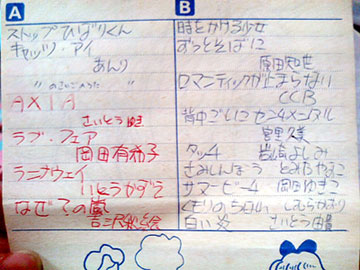 A
ストップひばりくん
キャッツ・アイ
あんり
AXIA
さいとうゆき
ラブ・フェア
岡田有希子
ラニナウェイ
いとうかずえ
なぜ？の嵐
吉沢秋絵
B
時をかける少女
ずっとそばに
原田知世
ロマンティックが止まらない
CCB
背中ごしにセンチメンタル
宮里久美
タッチ
岩崎よしみ
さみしんぼう
とみたやすこ
サマービーチ
岡田ゆきこ
くもりのち
白い炎
さいとう由貴